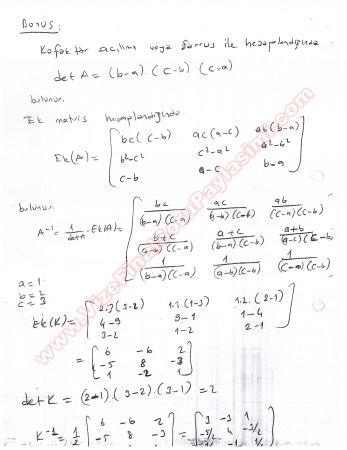 Bonus:
Kofaktör açılımı veya Sarrus ile hesaplandığında
det A = (b-a).(c-b) (c-a)
bulunur.
Ek matris hesaplandığında
Ek(A) = [ bc(c-b) ac(a-c) ab(b-a)
b²-c² c²-a² a²-b²
c-b a-c b-a ]
bulunur.
A⁻¹ = 1/detA . Ek(A) = [ bc/(b-a)(c-a) ac/(a-b)(c-b) ab/(c-a)(c-b)
b+c/(a-b)(c-a) a+c/(b-a)(c-b) a+b/(a-c)(c-b)
1/(b-a)(c-a) 1/(a-b)(c-b) 1/(c-a)(c-b) ]
a=1
b=2
c=3
Ek(K) = [ 2.3(3-2) 1.3.(1-3) 1.2.(2-1)
4-9 9-1 1-4
3-2 1-2 2-1 ]
= [ 6 -6 2
-5 8 -3
1 -2 1 ]
detK = (2-1).(3-2).(3-1) = 2
K⁻¹ = 1/2 [ 6 -6 2
-5 8 -3
= [ 3 -3 1
-5/2 4 -3/2